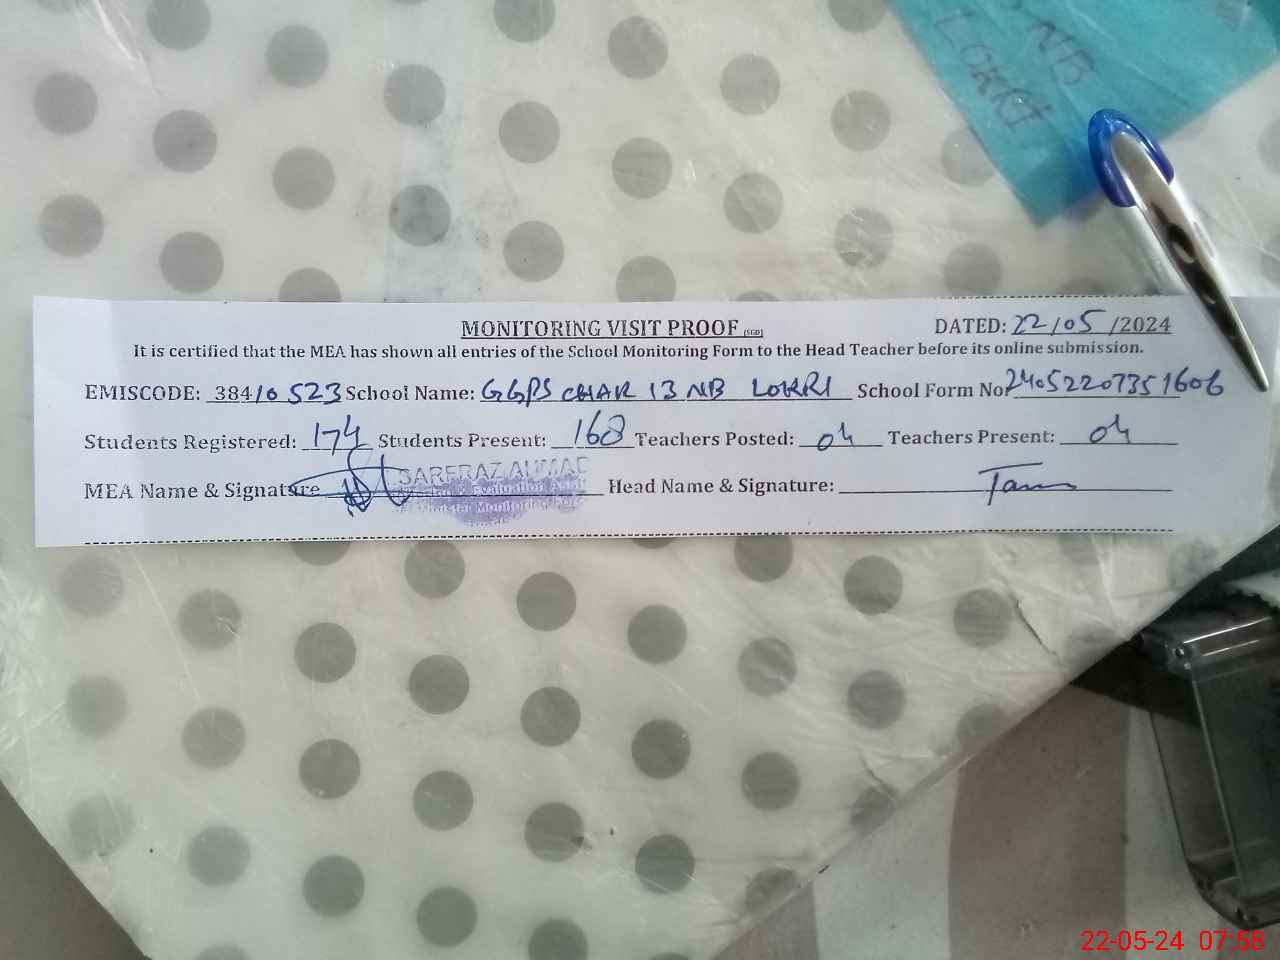 NB
LOKRI
MONITORING VISIT PROOF (SGD)
DATED: 22/05/2024
It is certified that the MEA has shown all entries of the School Monitoring Form to the Head Teacher before its online submission.
EMISCODE: 38410523 School Name: GGPS CHAK 13 NB LOKRI School Form No 2405220735 1606
Students Registered: 174 Students Present: 168 Teachers Posted: 04 Teachers Present: 04
MEA Name & Signature SARFRAZ AHMAD Head Name & Signature:
& Evaluation
Monitoring
22-05-24 07:58